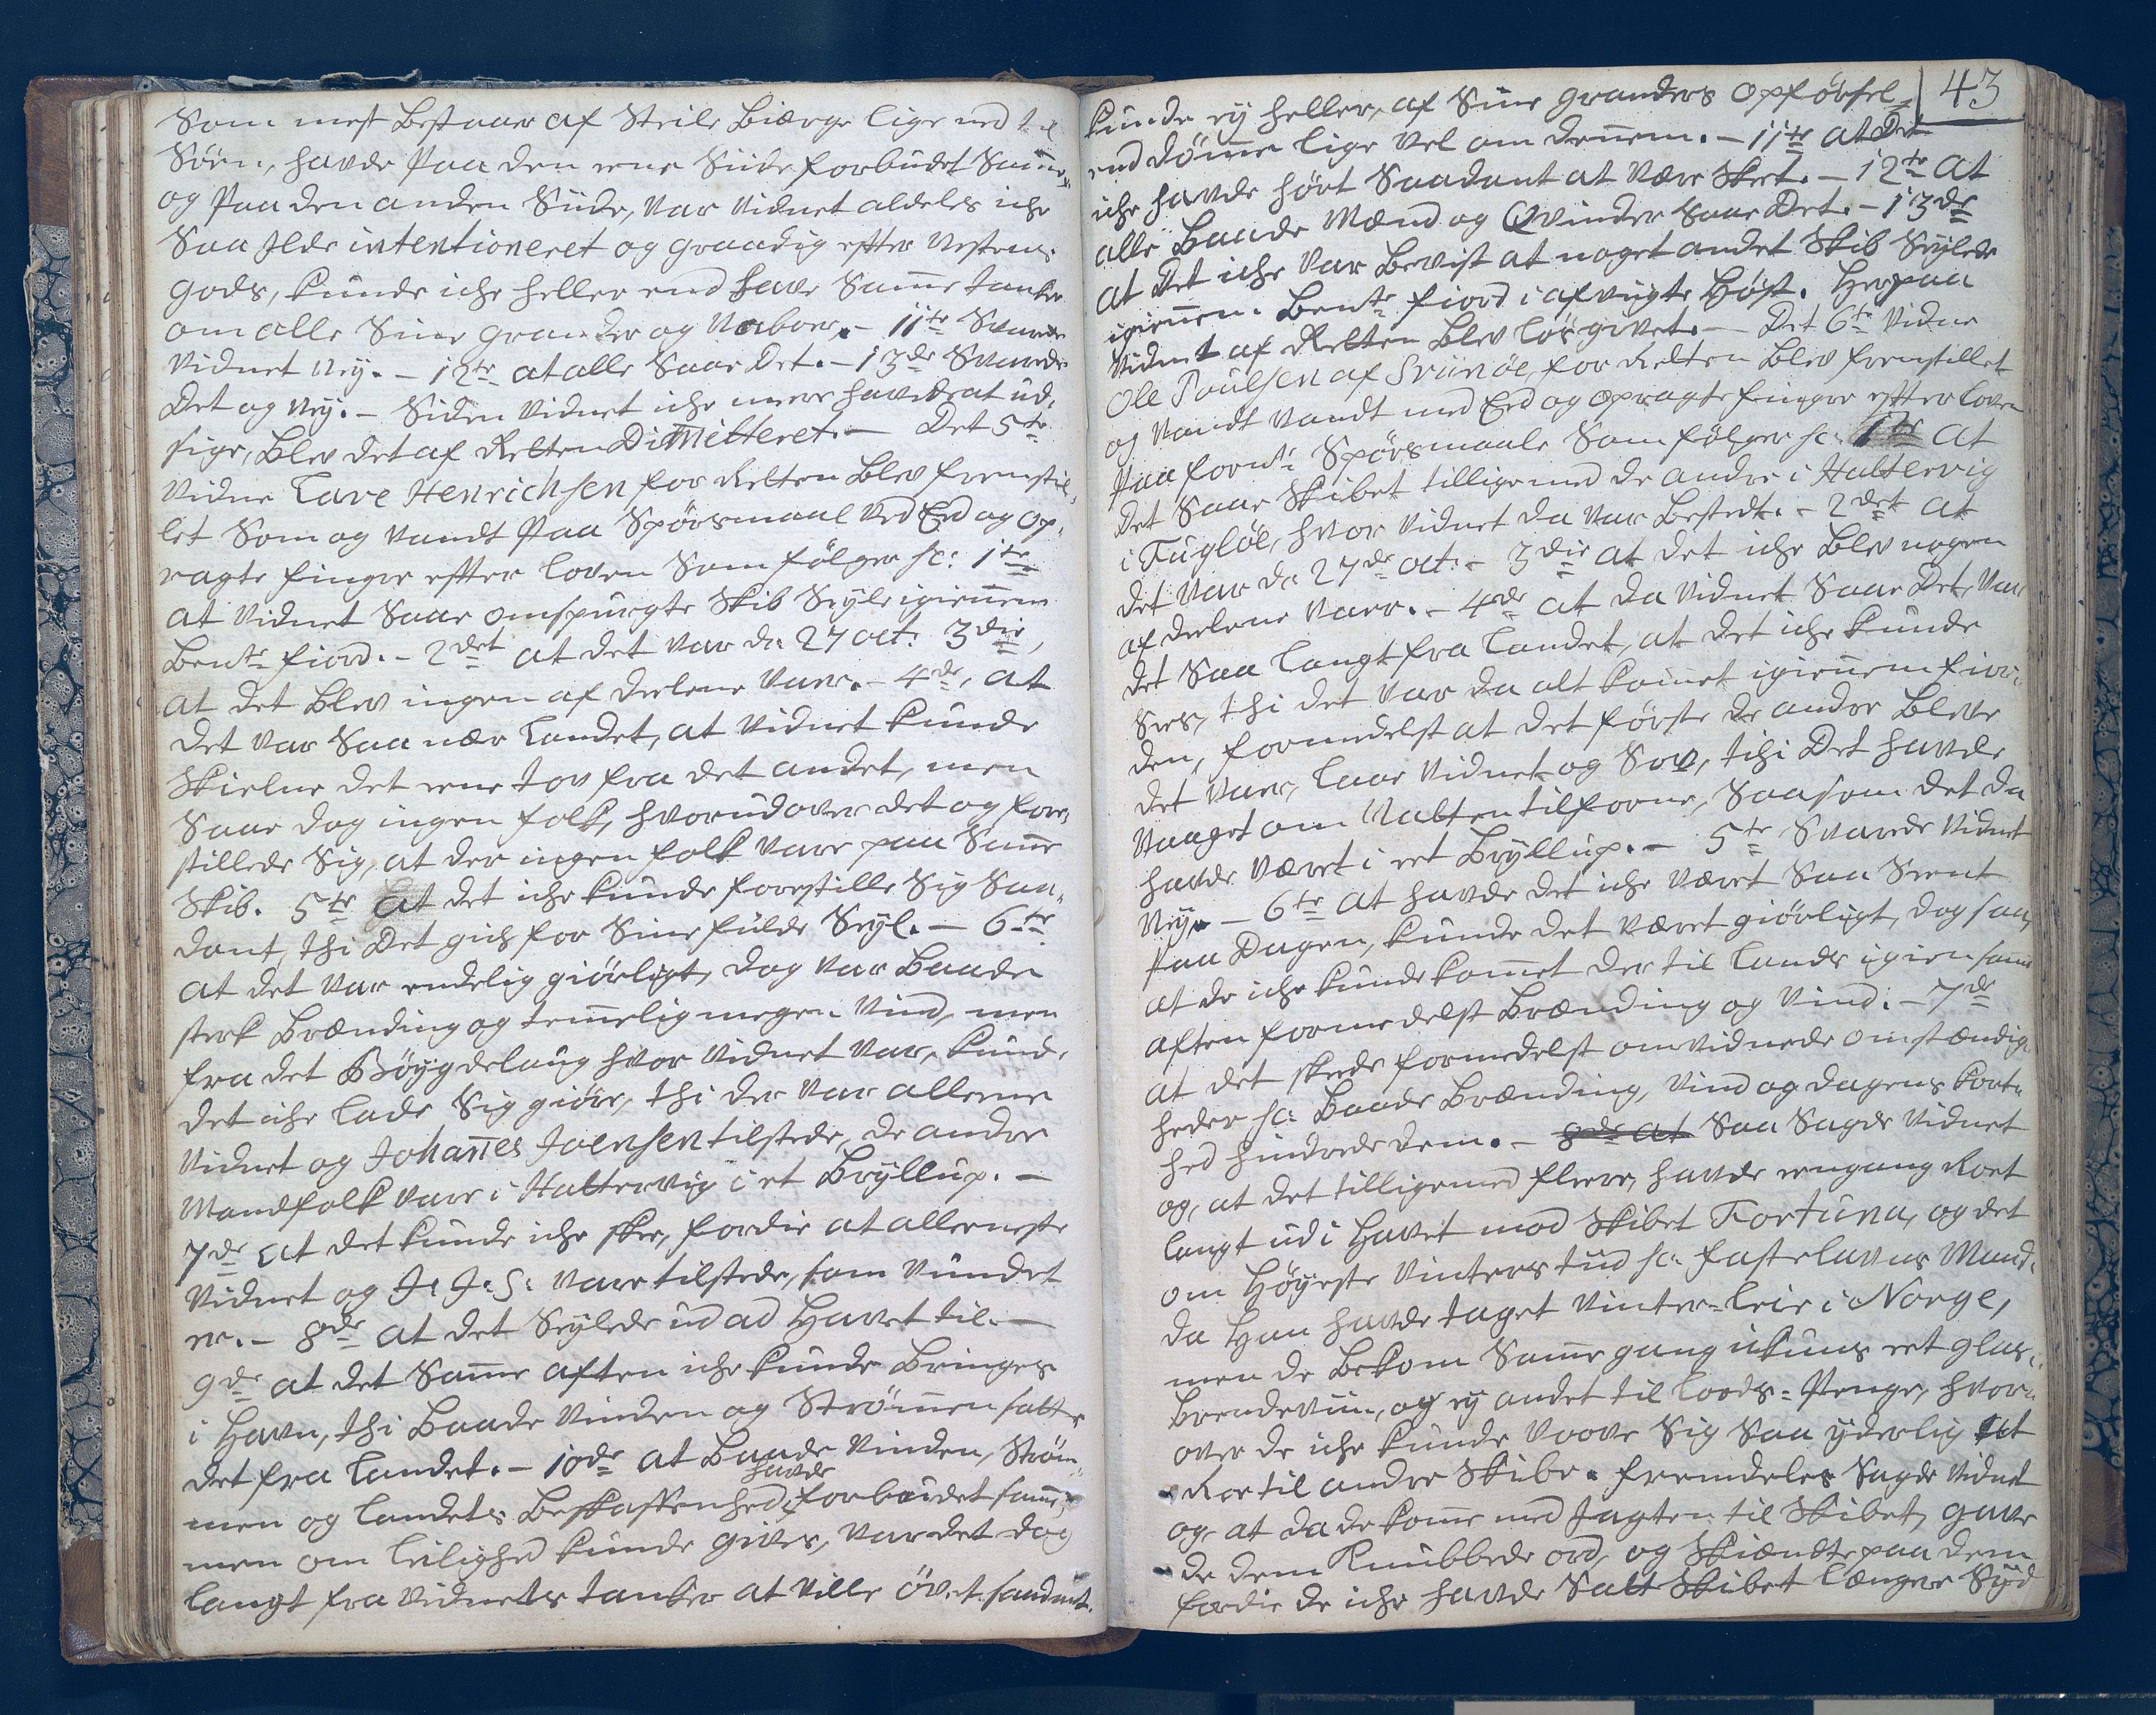 Som mest Bestaaer af Steile Biærge lige ned til
Söen, havde Paa den eene Siide forbudet Samme,
og Paa den anden Siide, var Vidnet aldeles iche
Saa Ilde intentioneret og graadig efter Næstens
gods, kunde iche heller end have Samme tanker
om alle Sine grander og Naboer. – 11te Svarede
Vidnet Ney. – 12te at alle Saae Det. – 13de Svarede
Det og Ney. – Siden Vidnet iche meere havde at ud,
sige, Blev det af Retten Dimitteret. – Det 5te
Vidne Lave Henrichsen for Retten Blev fremstil,
let Som og vandt Paa Spörsmaal ved Eed og Op,
ragte finger effter loven Som fölger sc: 1te
at Vidnet Saae omspurgte Skib Seyle igiennem
Bente fiord. – 2det at det var d: 27 oct: 3die,
at det Blev ingen af Deelene vaer. – 4de, at
det var Saa nær Landet, at Vidnet kunde
Skielne det eene Tov fra det andet, men
Saae dog ingen folk, hvorudover det og fore,
stillede Sig, at der ingen folk vare paa Samme
Skib. 5te at det iche kunde forestille Sig Saa,
dant, thi Det gich for Sine fulde Seyl. – 6te
at det var endelig giörligt, dog var Baade
sterk Brænding og temmelig megen Vind, men
fra det Böygdelaug hvor Vidnet var, kund,
det iche lade Sig giöre, thi der var alleene
Vidnet og Johannes Joensen tilstede, de andre
Mandfolk vare i Hattervig i et Bryllup. –
7de at det kunde iche skee, fordie at alleeneste
Vidnet og J: J: S: vare tilstede, som vundet
er. – 8de at det Seylede ud ad Havet til. –
9de at det Samme aften iche kunde Bringes
i Havn, thi Baade Vinden og Strömmen satte
det fra Landet. – 10de at Baade Vinden, Ström,
havde
men og Landets Beskaffenhed forbudet samme,
men om leilighed kunde gives, var det dog
langt fra Vidnets tanker at ville övet saadant.
43
kunde ey heller, af Sine granders Opförsel
end dömme lige vel om dennem. – 11te at Det
iche havde hört Saadant at være Skeet. – 12te at
alle Baade Mænd og Qvinder Saae Det. – 13de
at Det iche var Bevist at noget andet Skib Seylede
igiennem Bente fiord i afvigte Höst. Herpaa
Vidnet af Retten Blev lös givet. – Det 6te Vidne
Ole Poulsen af Svinöe, for Retten Blev fremstillet
og vandt med Eed og opragte finger effter loven
Paa formte Spörsmaale Som fölger sc: 1te at
det Saae Skibet tilligemed de andre i Hattervig
i Fuglöe, hvor Vidnet da var Bestedt. – 2det at
det var d: 27de oct: – 3die at det iche Blev nogen
af Deelene vaer. – 4de at da Vidnet Saae Det, var
det Saa langt fra Landet, at det iche kunde
Sees, thi det var da alt kommet igiennem fior,
den, formedelst at det förste de andre Bleve
det vaer, laae Vidnet og Sov, thi Det havde
vaaget om Natten tilforne, Saasom det da
havde været i eet Bryllup. – 5te Svarede Vidnet
Ney. – 6te at havde det iche været Saa Seent
Paa Dagen, kunde det været giörligt, dog saa,
at de iche kunde kommet der til Lands igien samme
aften formedelst Brænding og Vind. – 7de
at det skede formedelst omvidnede omstændig,
heder sc: Baade Brænding, Vind og dagens kort,
hed hindrede Dem. – 8de at Saa Sagde Vidnet
og, at det tilligemed fleere, havde eengang Roet
langt ud i Havet mod Skibet Fortuna, og det
om Höyeste Vinters tiid sc: fastelavns Mand,
da Han havde taget Vinter-leie i Norge,
men de Bekom Samme gang ikuns eet glas
Brendeviin, og ey andet til Loods-Penge, hvor,
over de iche kunde vove Sig Saa yderlig ut
Roe til andre Skibe. fremdeles Sagde Vidnet
og, at da de komme med Jagten til Skibet, gave
de dem Knubbede ord, og Skiendte paa dem
fordie de iche havde Satt Skibet længere Syd